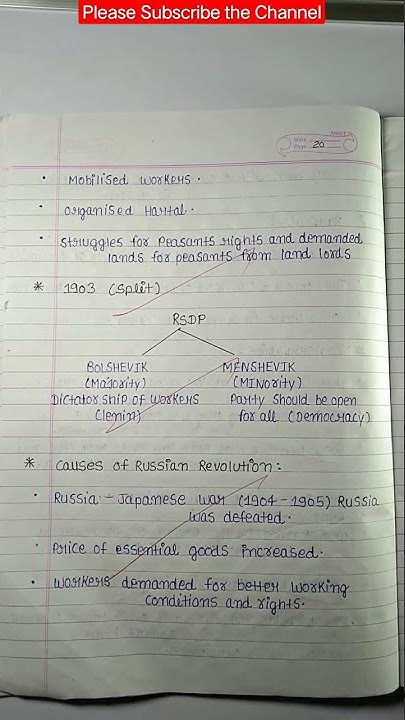 Please Subscribe the Channel
Date
Page 20
• Mobilised workers.
• Organised Hartal.
• Struggles for Peasants rights and demanded
lands for peasants from land lords
* 1903 (Split)
RSDP
BOLSHEVIK MENSHEVIK
(Majority) (MINority)
Dictator ship of workers Party should be open
(lenin) for all (Democracy)
* Causes of Russian Revolution:
• Russia - Japanese war (1904-1905) Russia
was defeated.
• Price of essential goods increased.
• Workers demanded for better working
conditions and rights.